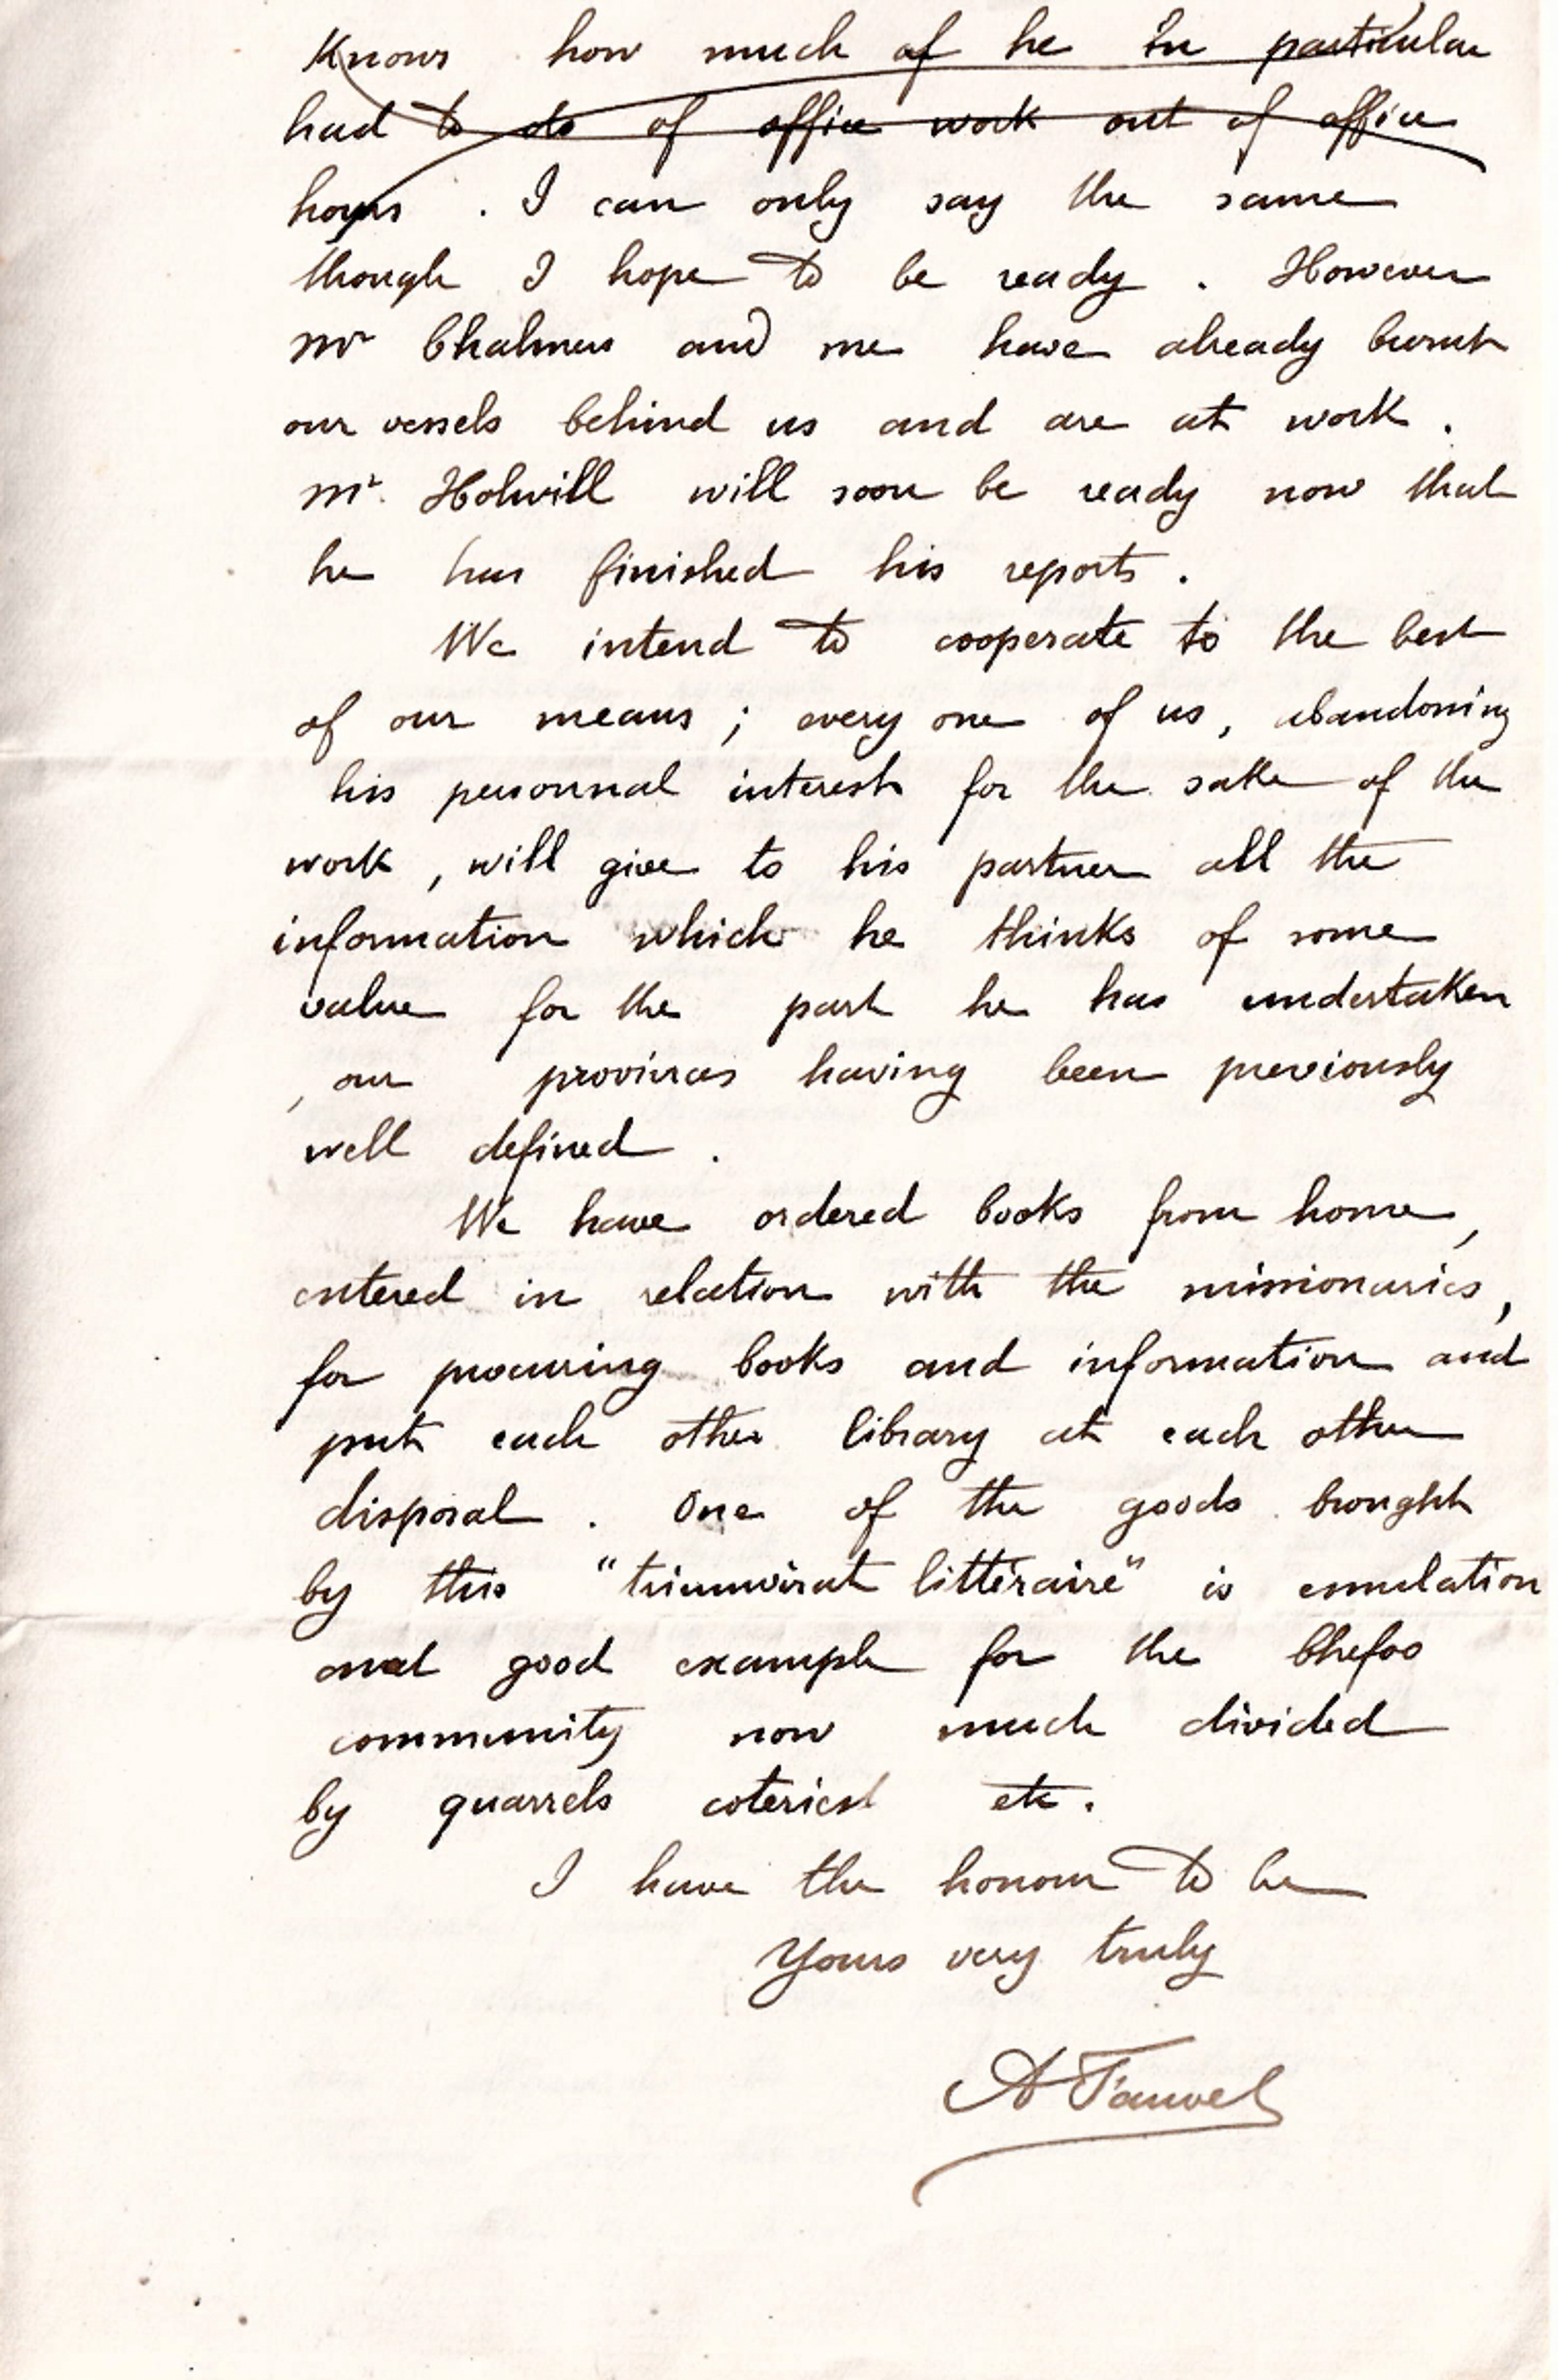 Knows how much of he in particular
had to do of office work out of office
hours . I can only say the same
though I hope to be ready . However
Mr Chalmers and me have already burnt
our vessels behind us and are at work .
Mr. Holwill will soon be ready now that
he has finished his reports .
We intend to cooperate to the best
of our means ; every one of us , abandoning
his personnal interest for the sake of the
work , will give to his partner all the
information which he thinks of some
value for the part he has undertaken
, our provinces having been previously
well defined .
We have ordered books from home ,
entered in relation with the missionaries ,
for procuring books and information and
put each other library at each other
disposal . One of the goods brought
by this "triumvirat littéraire" is emulation
and good example for the Chefoo
community now much divided
by quarrels coteries etc .
I have the honour to be
Yours very truly
A Fauvel